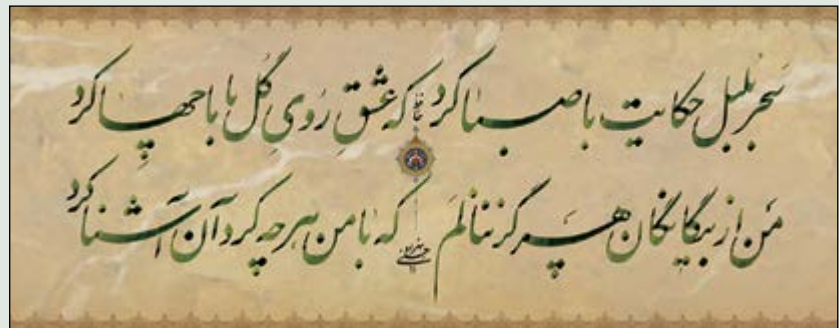 سَحَر بلبل حکایت با صبا کرد که عشقِ رُویِ گُل با ما چها کرد
حافظ
مَن از بیگانگان هرگز ننالَم که با من هرچه کرد آن آشنا کرد